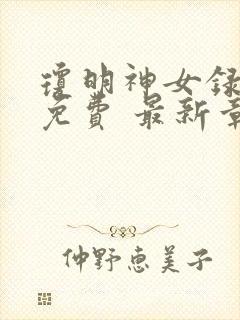 琼明神女録
免费 最新章
仲野恵美子